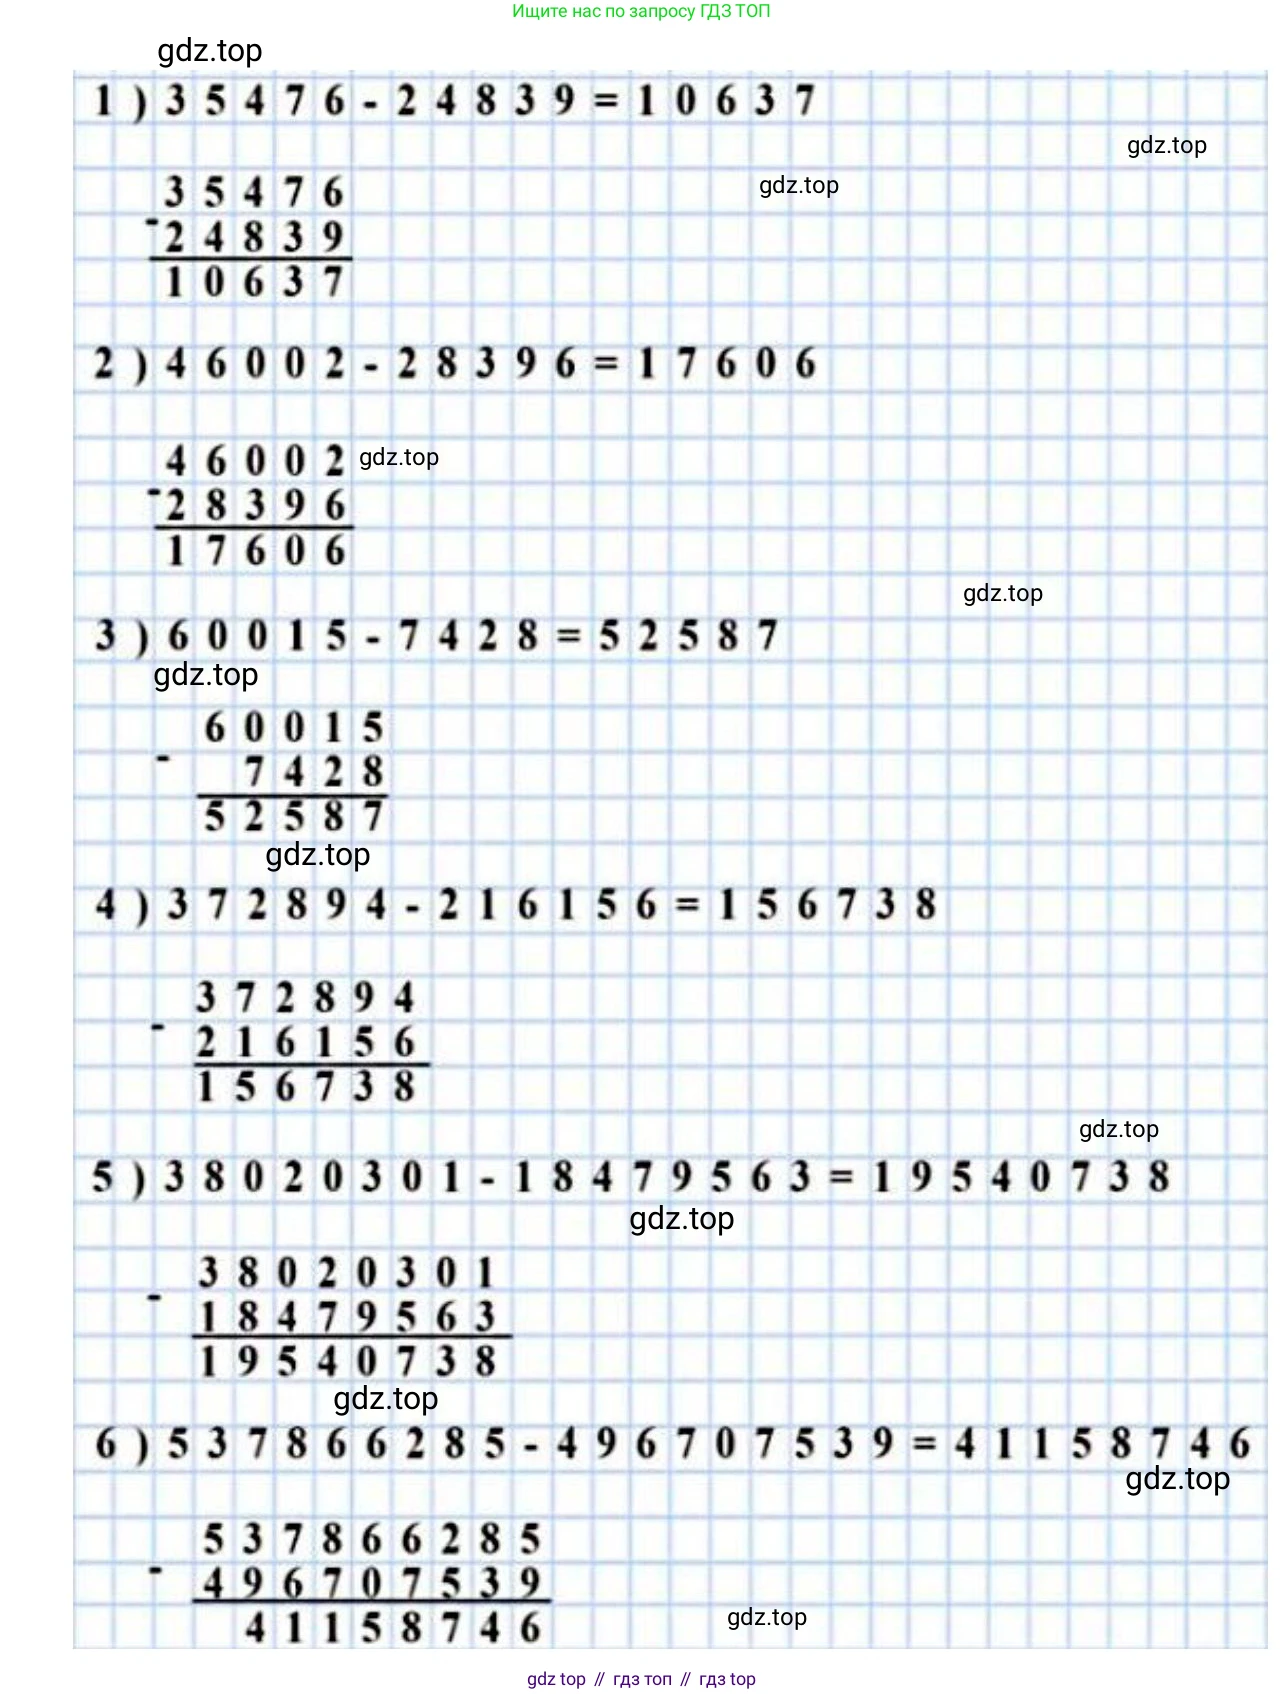 Ищите нас по запросу ГДЗ ТОП
gdz.top
1) 35476-24839=10637
gdz.top
gdz.top
35476
-
24839
10637
2) 46002-28396=17606
46002 gdz.top
-
28396
17606
gdz.top
3) 60015-7428=52587
gdz.top
60015
-
7428
52587
gdz.top
4) 372894-216156=156738
372894
-
216156
156738
gdz.top
5) 38020301-18479563=19540738
gdz.top
38020301
-
18479563
19540738
gdz.top
6) 537866285-496707539=41158746
gdz.top
537866285
-
496707539
41158746
gdz.top
gdz top // гдз топ // гдз top